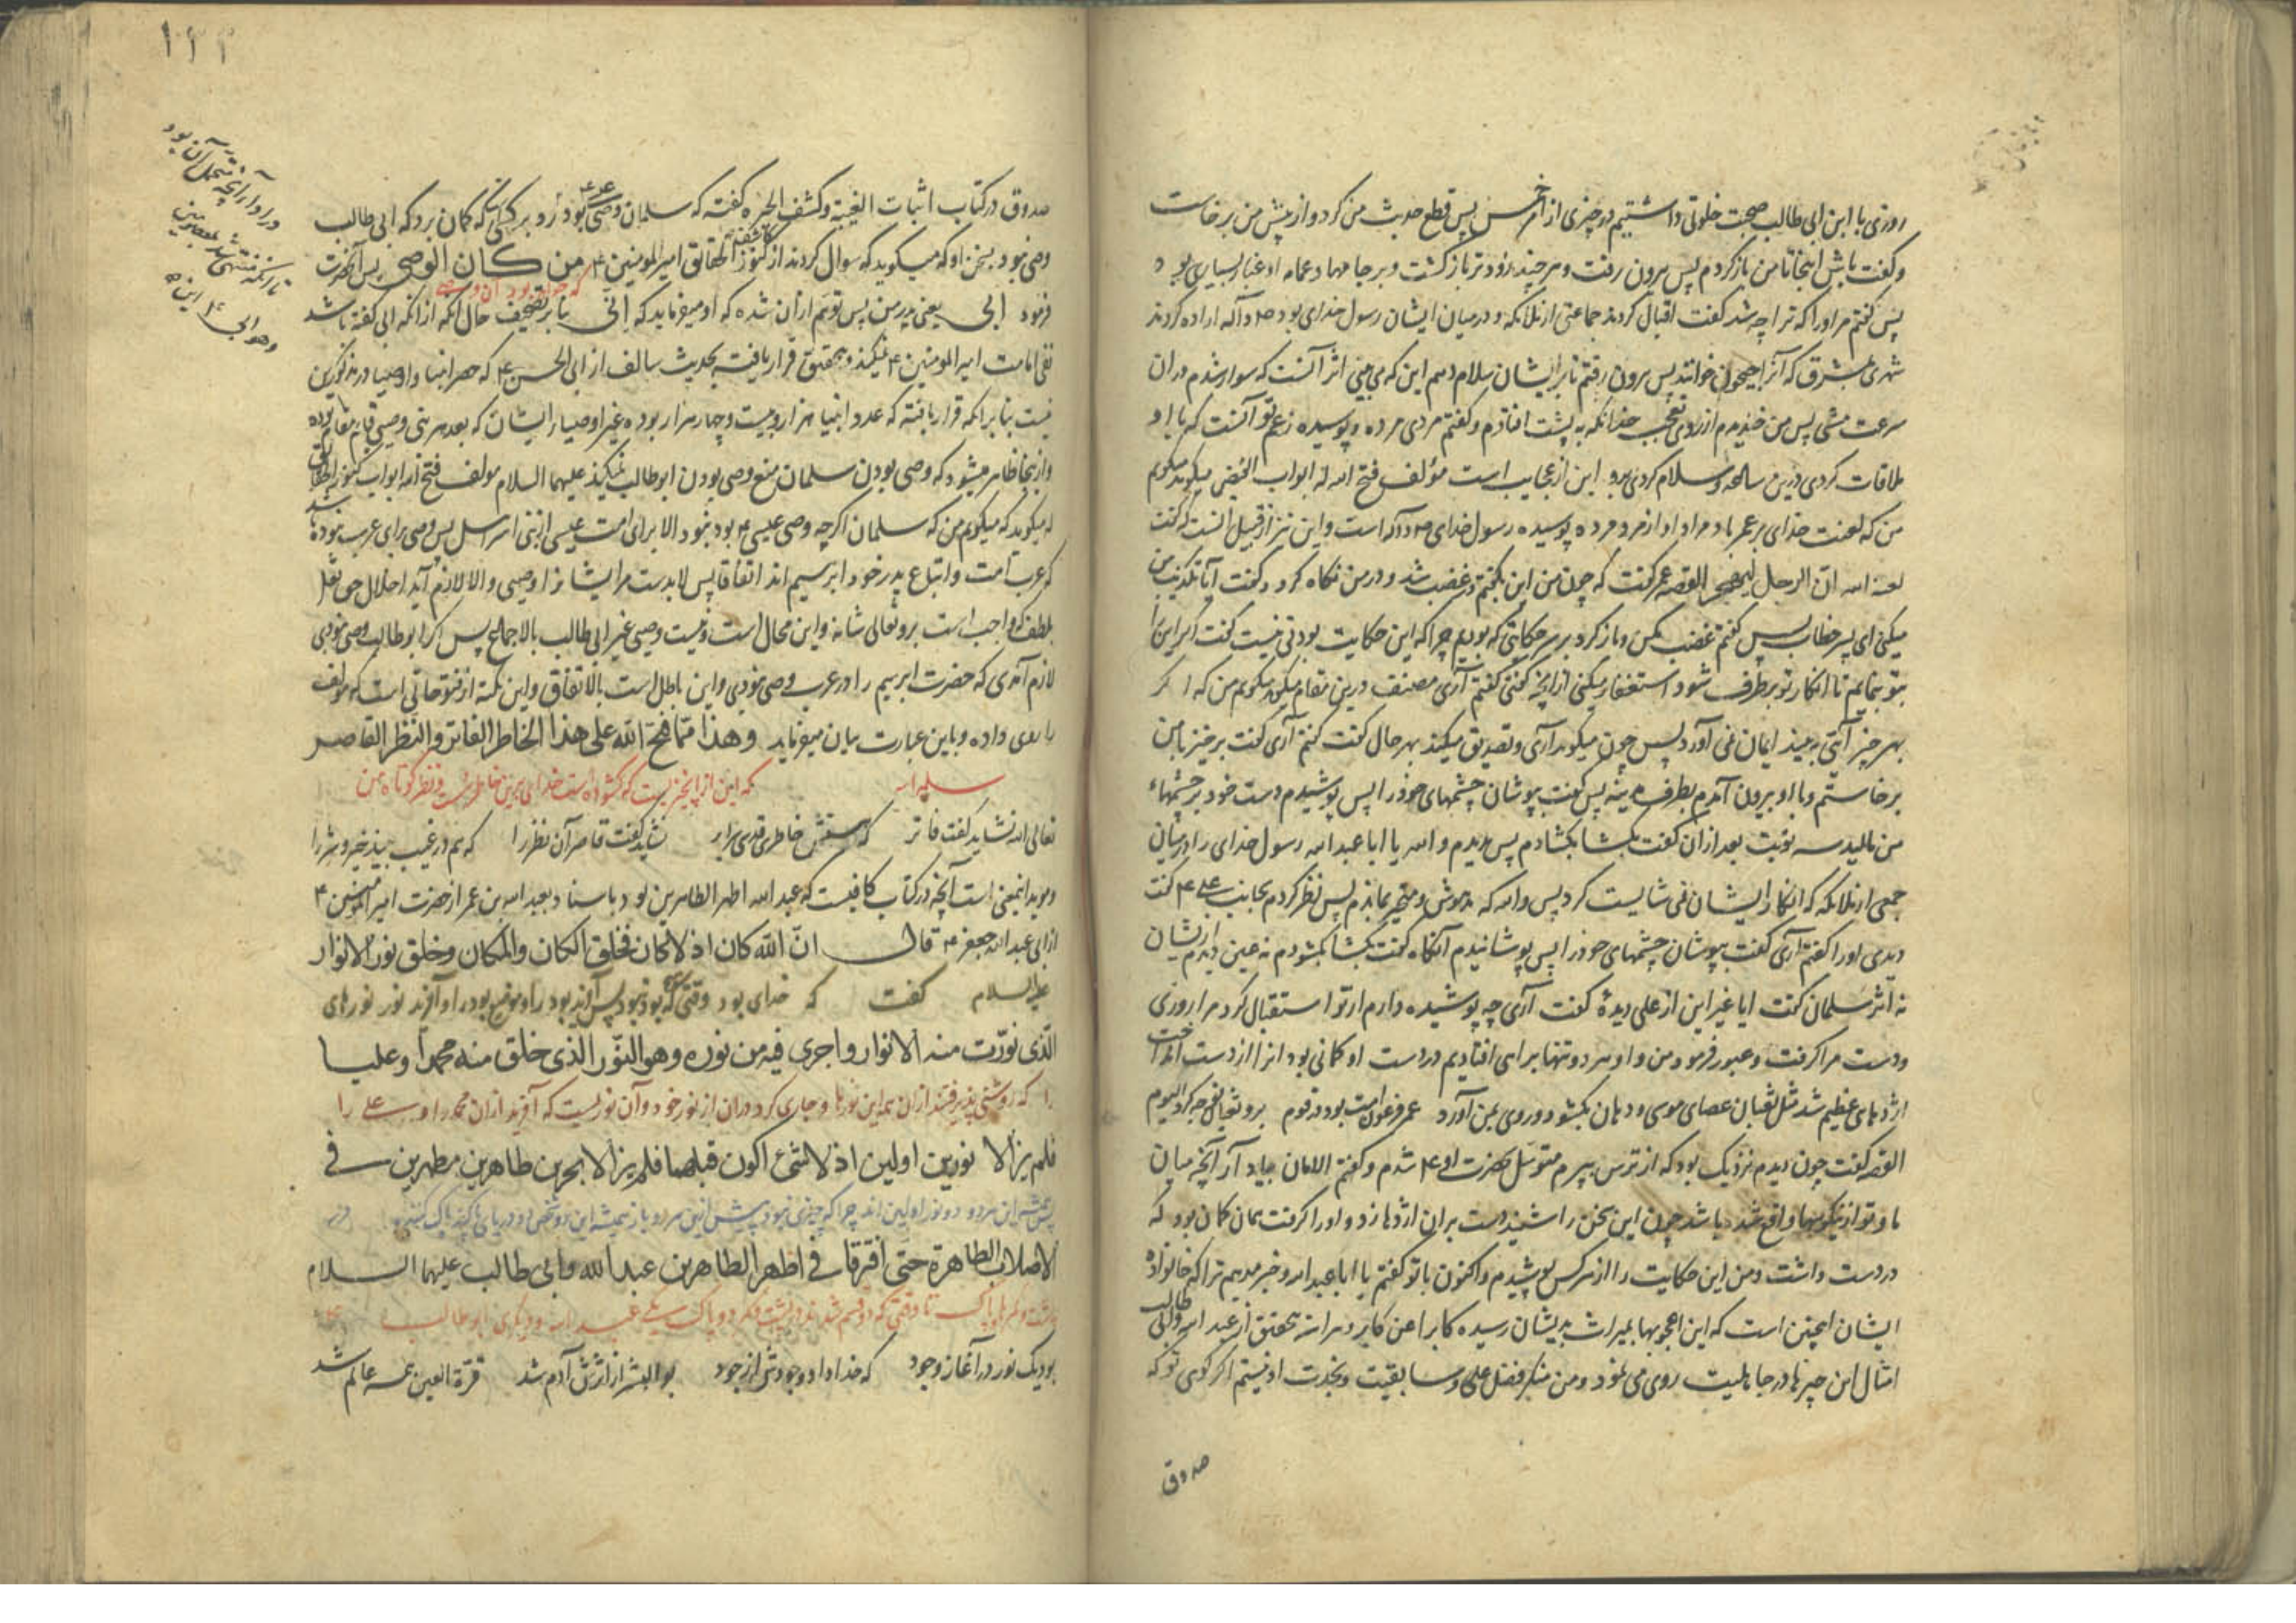 روزی با ابن ابی طالب صحبت خلوتی داشتیم در چیزی از امر خمس پس قطع حدیث من کرد و از پیش من برخاست
و گفت باش اینجا تا من بازگردم پس بیرون رفت و هر چند زودتر بازگشت و بر جامها و عمامه او غبار بسیاری بود
پس گفتم مر او را که ترا چه شد گفت اقبال کردند جماعتی از ملائکه و در میان ایشان رسول خدای بود ص و آله اراده کردند
شهری بمشرق که آنرا جیحون خوانند پس بیرون رفتم تا بر ایشان سلام دهم این که می بینی اثر آنست که سوار شدم در آن
سرعت مشی پس من خندیدم از روی تعجب چندانکه به پشت افتادم و گفتم مردی مرده و پوسیده زعم تو آنست که با او
ملاقات کردی درین ساعه و سلام کردی برو این از عجایب است مؤلف فتح الله له ابواب الفیض میگوید میگویم
من که لعنت خدای بر عمر باد مراد او از مرد مرده پوسیده رسول خدای ص و آله است و این نیز از قبیل آنست که گفت
لعنه الله ان الرجل لیهجر القصه عمر گفت که چون من این بگفتم در غضب شد و در من نگاه کرد و گفت آیا تکذیب من
میکنی ای پسر خطاب پس گفتم غضب مکن و باز گرد بر سر حکایتی که بودیم چرا که این حکایت بودنی نیست گفت اگر این را
بتو بنمایم تا انکار تو برطرف شود استغفار میکنی از آنچه گفتی گفتم آری مصنف درین مقام میگوید میگویم من که اگر
بهر چیز آیتی به بیند ایمان نمی آورد پس چون میگوید آری و تصدیق میکند بهر حال گفت گفتم آری گفت برخیز با من
برخاستم و با او بیرون آمدم بطرف مدینه پس گفت بپوشان چشمهای خود را پس پوشیدم دست خود بر چشمهاء
من مالید سه نوبت بعد از آن گفت بگشا بگشادم پس دیدم و الله یا ابا عبد الله رسول خدای را در میان
جمعی از ملائکه که انکار ایشان نمی شایست کرد پس والله که مدهوش و متحیر بماندم پس نظر کردم بجانب علی ع گفت
دیدی او را گفتم آری گفت بپوشان چشمهای خود را پس پوشانیدم آنگاه گفت بگشا بگشودم نه عین دیدم از ایشان
نه اثر سلمان گفت آیا غیر این از علی دیدهٔ گفت آری چه پوشیده دارم از تو استقبال کرد مرا روزی
و دست مرا گرفت و عبور فرمود من و او هر دو تنها براهی افتادیم در دست او کمانی بود آنرا از دست انداخت
اژدهای عظیم شد مثل ثعبان عصای موسی و دهان بگشود و روی بمن آورد عمر فرعون امت بود در قوم
القصه گفت چون دیدم نزدیک بود که از ترس بمیرم متوسل بحضرت او ع شدم و گفتم الامان بیاد آر آنچه میان
ما و تو از نیکوییها واقع شده باشد چون این سخن را شنید دست بر آن اژدها زد و او را گرفت همان کمان بود که
در دست داشت و من این حکایت را از هر کس پوشیدم و اکنون با تو گفتم یا ابا عبد الله و خبر میدهم ترا که خانوادهٔ
ایشان اینچنین است که این اعجوبها بمیراث بدیشان رسیده کابرا عن کابر و هر آینه بتحقیق از عبد الله و ابی طالب
امثال این چیزها در جاهلیت روی می نمود و من منکر فضل علی و سابقیت و نجدت او نیستم اگر گوی تو که
صدوق
١٢٢
صدوق در کتاب اثبات الغیبة و کشف الحیرة گفته که سلمان وصی وصی عیسی بود و رد بر کسی که گمان برد که ابی طالب
وصی بود بسخن او که میگوید که سوال کردند از کنوز الحقائق امیر المومنین ع من کان الوصی پس آنحضرت
که خواهد بود آن وصی
فرمود ابی یعنی پدر من پس توهم از آن شده که او میفرماید که انی بنابر تصحیف حال آنکه از آنکه ابی گفته باشد
نفی امامت امیر المومنین ع نمیکند و بتحقیق قرار یافته بحدیث سالف از ابی الحسن ع که حصر انبیا و اوصیا در مذکورین
نیست بنابر آنکه قرار یافته که عدد انبیا هزار و بیست و چهار هزار بوده غیر اوصیاء ایشان که بعد هر نبی وصی قائم مقام بوده
و از اینجا ظاهر میشود که وصی بودن سلمان منع وصی بودن ابو طالب نمیکند علیهما السلام مولف فتح الله ابواب کنوز
له میگوید که میگویم من که سلمان اگر چه وصی عیسی ع بود نبود الا برای امت عیسی از بنی اسرائیل پس وصی برای عرب نبود
که عرب امت و اتباع پدر خود ابراهیم اند اتفاقا پس لابدست مر ایشانرا وصیی و الا لازم آید اخلال حق تعالی
بلطف که واجب است برو تعالی شانه و این محال است و نیست وصی غیر ابی طالب بالاجماع پس اگر ابو طالب وصی نبودی
لازم آمدی که حضرت ابراهیم را در عرب وصی نبودی و این باطل است بالاتفاق و این نکته از فتوحاتی است که مولف
را روی داده و باین عبارت بیان میفرماید وهذا مما فتح الله علی هذا الخاطر الفاتر والنظر القاصر
سلمه الله که این از آن چیزیست که گشوده است خدای برین خاطر سست و نظر کوتاه من
تعالی الله نشاید گفت فاتر که هستش خاطری قدسی نشاید گفت قاصر آن نظر را که هم در غیب بیند خیر و شر را
و موید اینمعنی است آنچه در کتاب کافیست که عبد الله اطهر الطاهرین بود باسناد بعبد الله بن عمر از حضرت امیر المومنین ع
از ابی عبد الله جعفر ع قال ان الله کان اذ لا کان فخلق الکان والمکان وخلق نور الانوار
علیه السلام گفت که خدای بود وقتی که بود نبود پس آفرید بود را و موضع بود را و آفرید نور نورهای
الذی نورت منه الانوار واجری فیه من نوره وهو النور الذی خلق منه محمدا وعلیا
را که روشنی پذیرفتند از آن همه این نورها و جاری کرد در آن از نور خود و آن نوریست که آفرید از آن محمد را و علی را
فلم یزالا نورین اولین اذ لا شیٔ اکون قبلهما فلم یزالا یجریان طاهرین مطهرین فی
پس همیشه این هر دو دو نور اولین اند چرا که چیزی نبود پیش ازین هر دو
الاصلاب الطاهرة حتی افترقا فی اطهر الطاهرین عبد الله وابی طالب علیهما السلام
تا وقتی که دو قسم شدند در پشت دو پاک یکی عبد الله و دیگری ابو طالب
بود یک نور در آغاز وجود که خدا داد وجودش از جود بو البشر از اثرش آدم شد قرة العین همه عالم شد